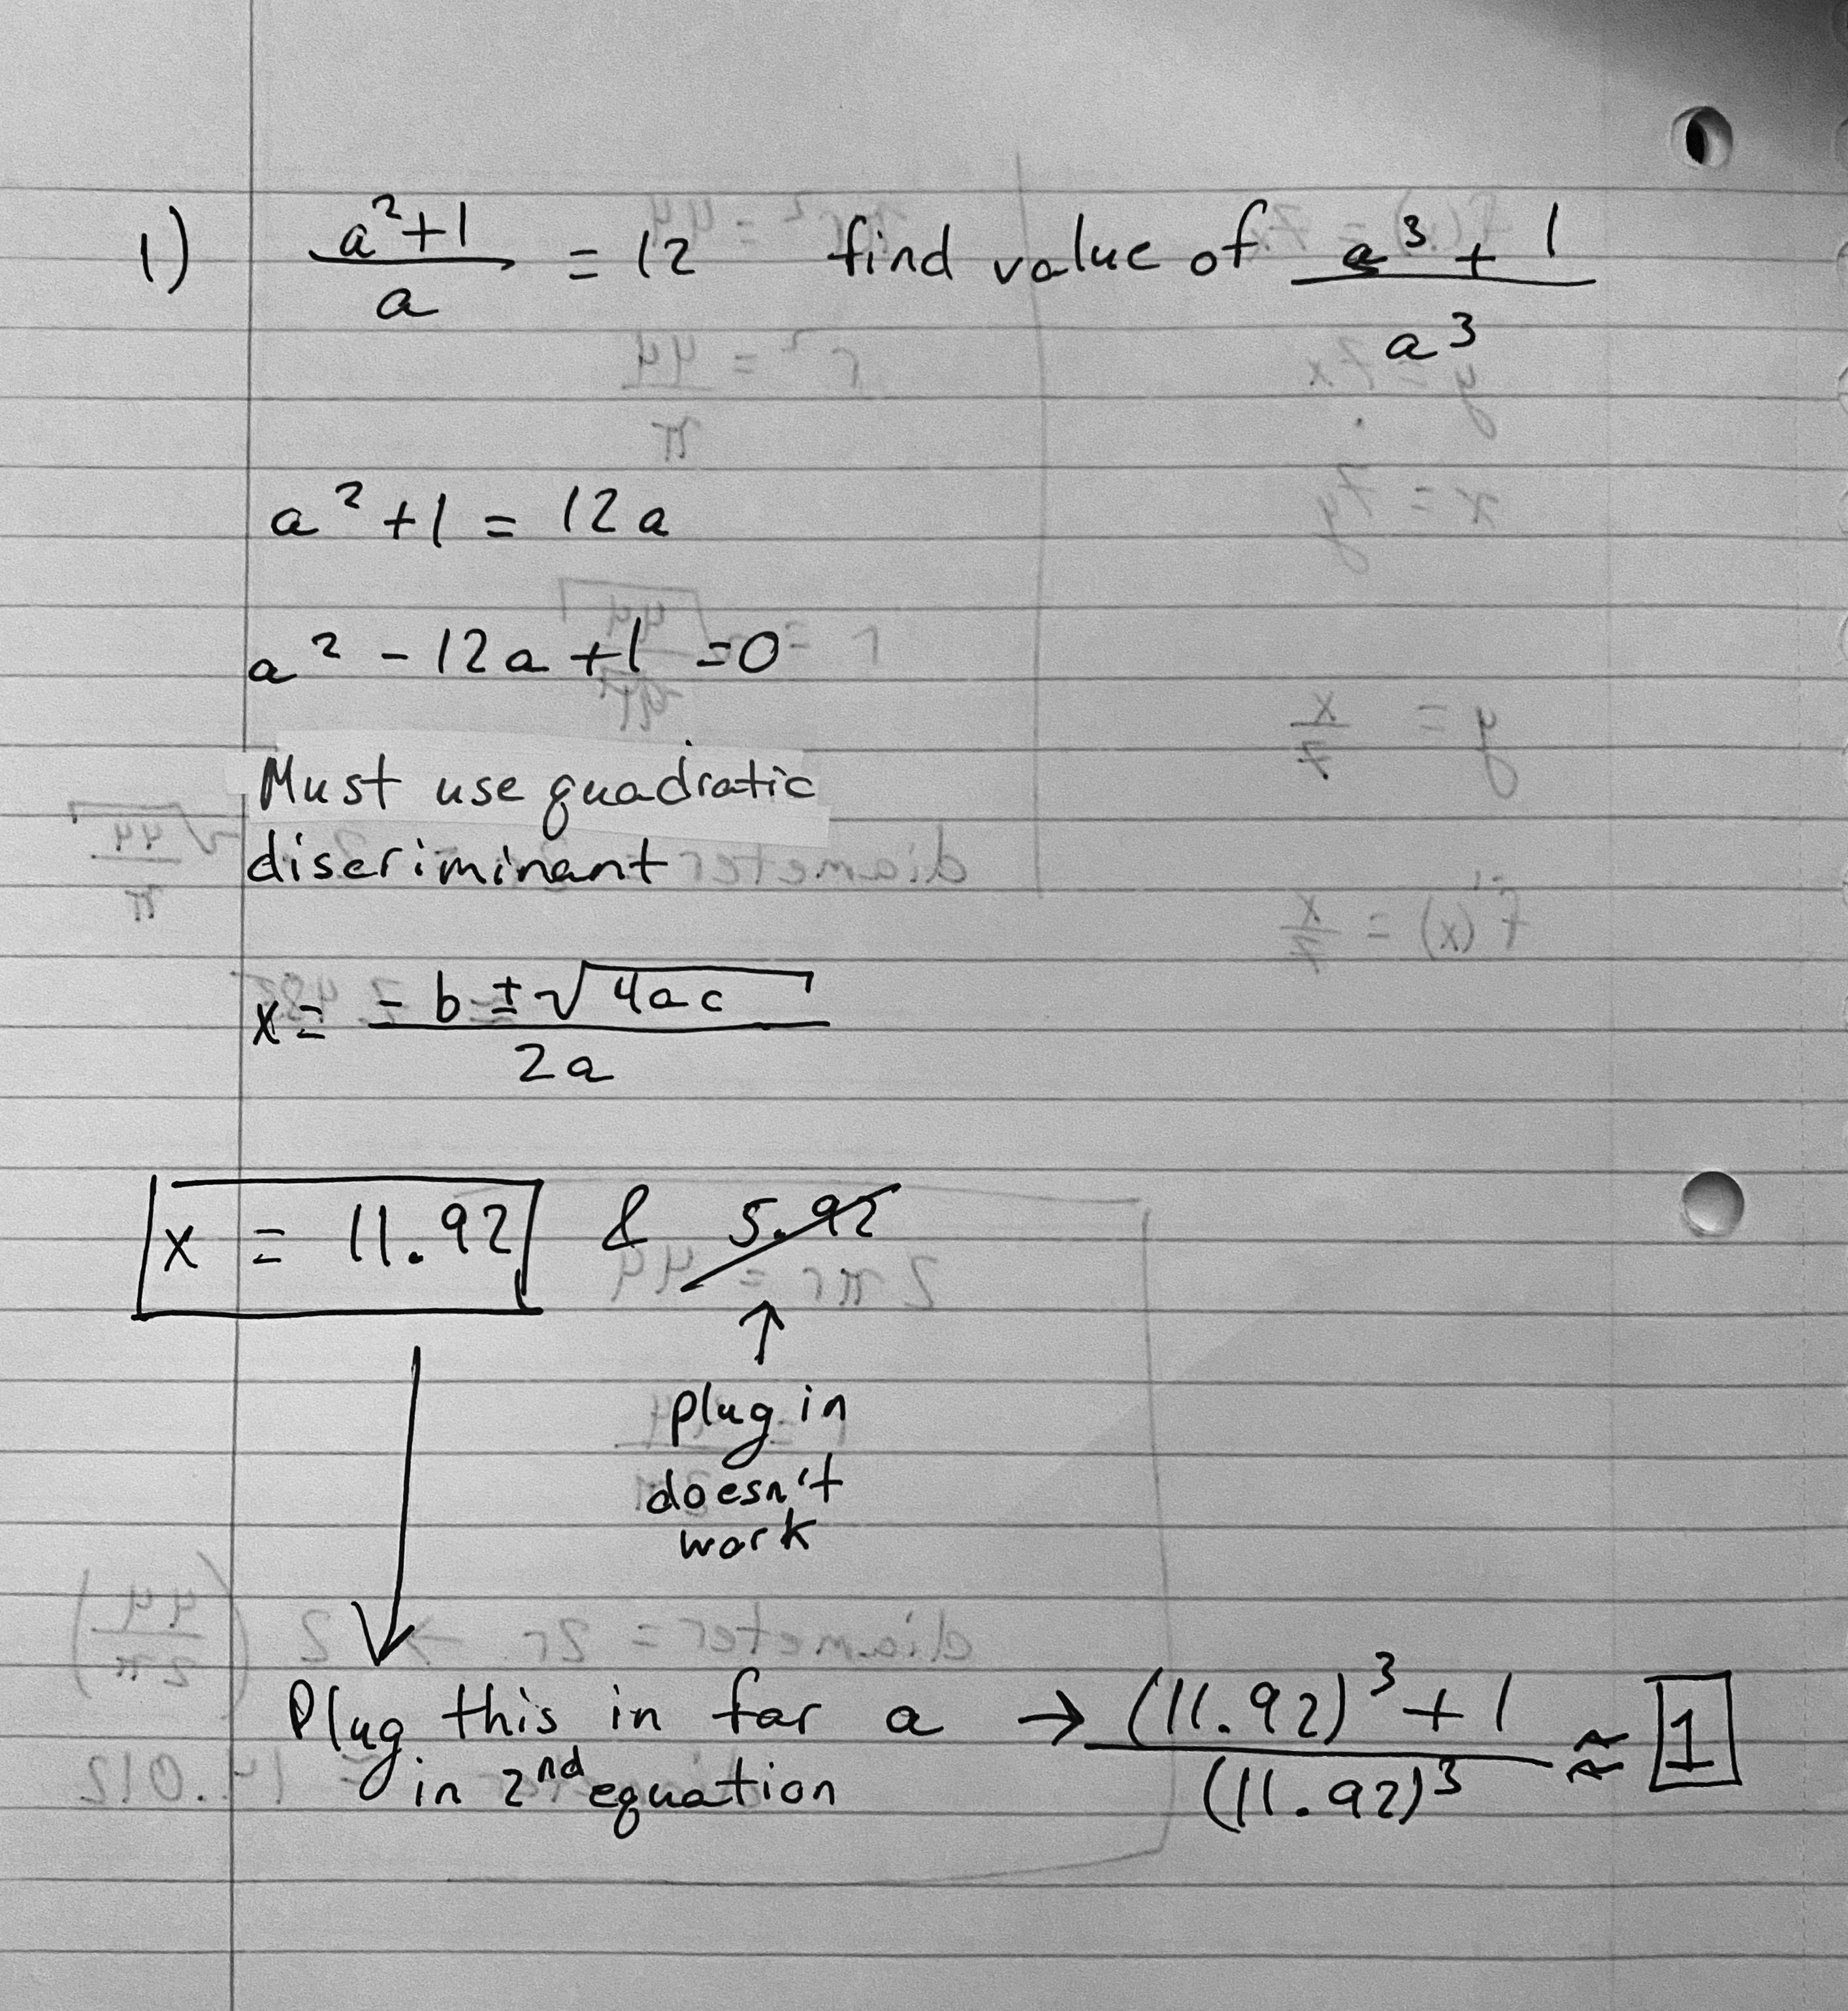 1) (a²+1)/a = 12 find value of (a³ + 1)/a³
a² + 1 = 12a
a² - 12a + 1 = 0
Must use quadratic
discriminant
x = (-b ± √(4ac))/(2a)
x = 11.92 & 5.92
↑
plug in
doesn't
work
Plug this in for a → ((11.92)³ + 1)/(11.92)³ ≈ 1
in 2nd equation